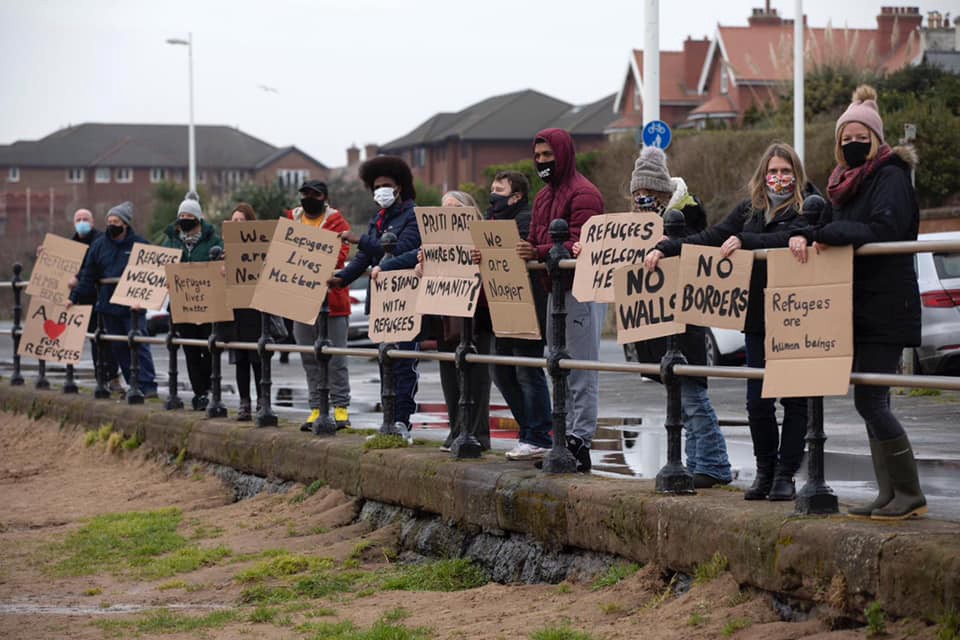 REFUGEES
ARE
HUMAN
BEINGS
A BIG
FOR
REFUGEES
REFUGEES
WELCOME
HERE
Refugees
lives
matter
We
are
Napier
Refugees
Lives
Matter
WE STAND
with
REFUGEES
PRITI PATEL
WHERE IS YOUR
HUMANITY
We
are
Napier
REFUGEES
WELCOME
HERE
NO
WALLS
NO
BORDERS
Refugees
are
human beings